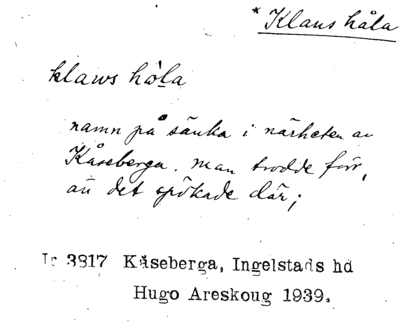 * Klaus håla
klaws hòla
namn på sänka i närheten av
Kåseberga. Man trodde förr,
att det spökade där;
Ir 3817 Kåseberga, Ingelstads hd
Hugo Areskoug 1939.